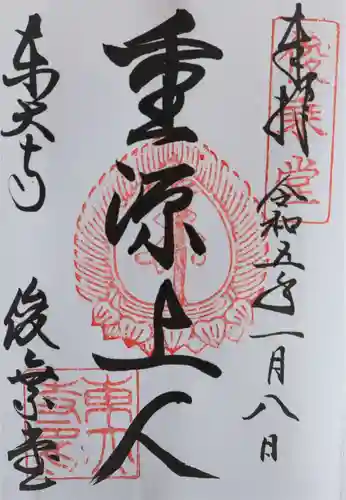 奉拝
俊乗堂
令和五年一月八日
重源上人
東大寺
俊乗堂